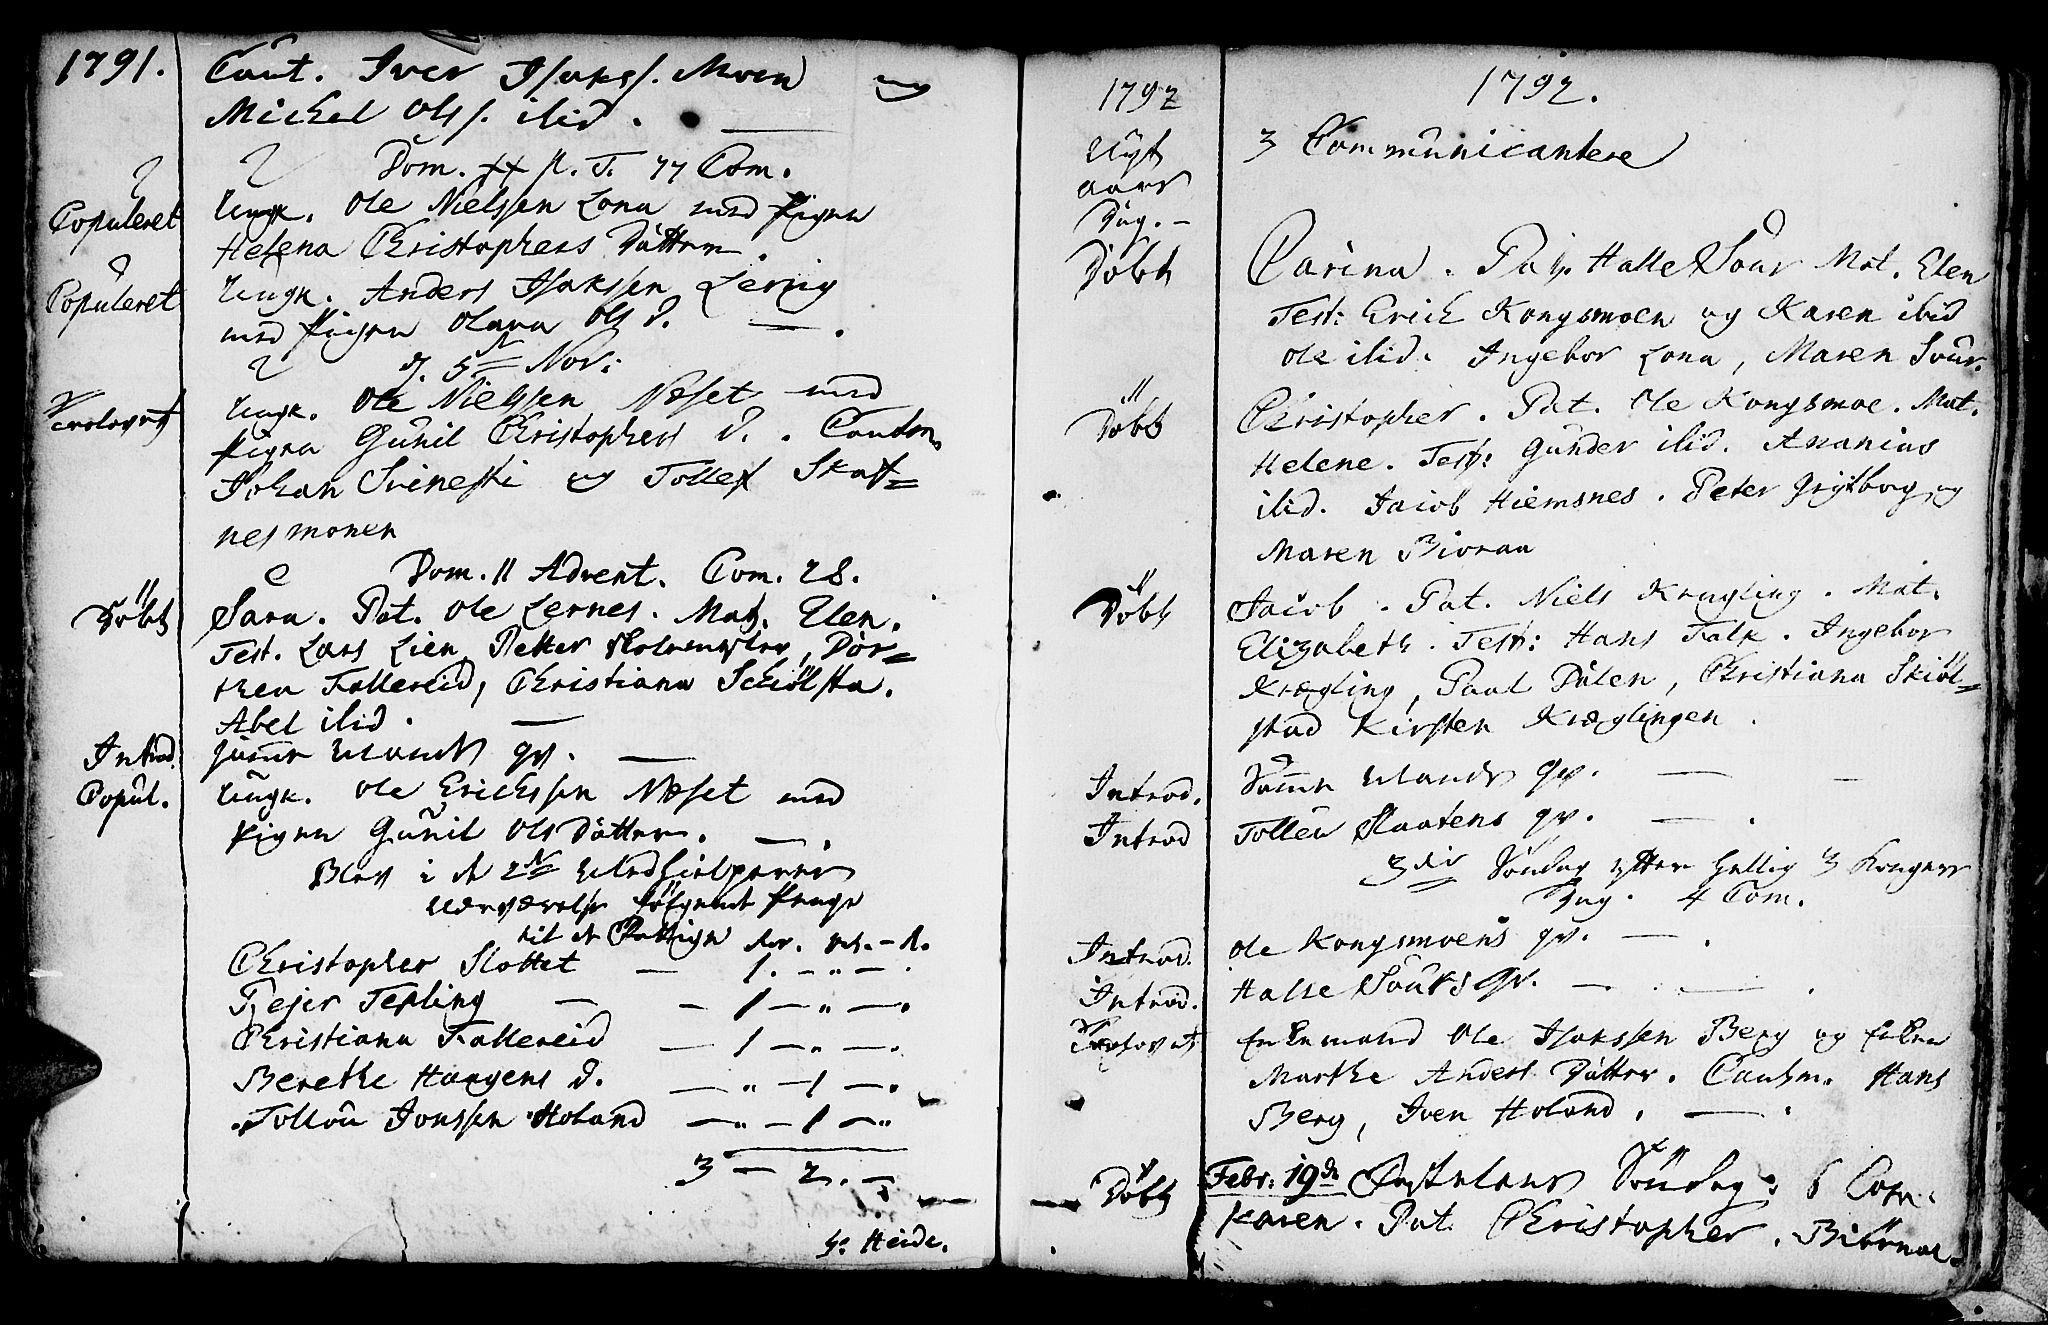 1791.
Caut. Iver Isakss. Moen og
Michel Olss. ibid.
Dom. XX p. T. 77 Com.
Copuleret
Ungk. Ole Nielssen Lona med Pigen
Helena Christophers Datter.
Copuleret
Ungk. Anders Isakssen Lerrig
med Pigen Olava Ols D.
d. 5te Nov:
Trolovet
Ungk. Ole Nielssen Næset med
Pigen Gunil Christophers D. Cauten.
Johan Svinesti og Tollef Skaf=
nesmonen
Dom. II Advent. Com. 28.
Döbt
Sara. Pat. Ole Lernes. Mat. Elen.
Test. Lars Lien, Petter Skolemester, Dor=
thea Fallereid, Christiana Schiölsta.
Abel ibid.
Introd.
qv.
Copul.
Ungk. Ole Erichssen Næset med
Pigen Gunil Ols Datter.
Blev i de 2de Medhielperes
Nærværelse fölgende Penge
til de
Christopher Slottet — 1. — " —
Tejer Tepling — 1 — " —
Christiana Fallereid — 1 — " —
Berethe Haagens D. — " — 1 —
Tollou Jonssen Holand — " — 1 — "
3 — 2. —
S: Heide.
1792
1792.
Nyt
aars
Dag. —
3 Communicantere
Döbt
Carina. Pat. Halle Sour Mat. Elen
Test: Erich Kongsmoen og Karen ibid
Ole ibid. Ingebor Lona, Maren Sour.
Döbt
Christopher. Pat. Ole Kongsmoe. Mat.
Helene. Test: Gunder ibid. Ananias
ibid. Jacob Hiemsnes. Peter og
Maren Biöraa
Döbt
Jacob. Pat. Niels Krægling. Mat.
Elizabeth. Test: Hans Falk. Ingebor
Krægling, Paul Dalen, Christiana Skiöl=
stad Kirsten Kræglingen.
Introd.
qv.
Introd
Tolleu Slaatens qv.
3die Söndag efter Hellig 3 Kongers
Dag. 4 Com.
Introd.
Ole Kongsmoens qv.
Introd.
Halle Sours qv.
Trolovet
Enkemand Ole Isakssen Berg og Enken
Marthe Anders Datter. Cautm. Hans
Berg, Iven Holand.
Döbt
Febr: 19de Fastelavns Söndag: 6 Com.
Karen. Pat. Christopher. Biörnaa